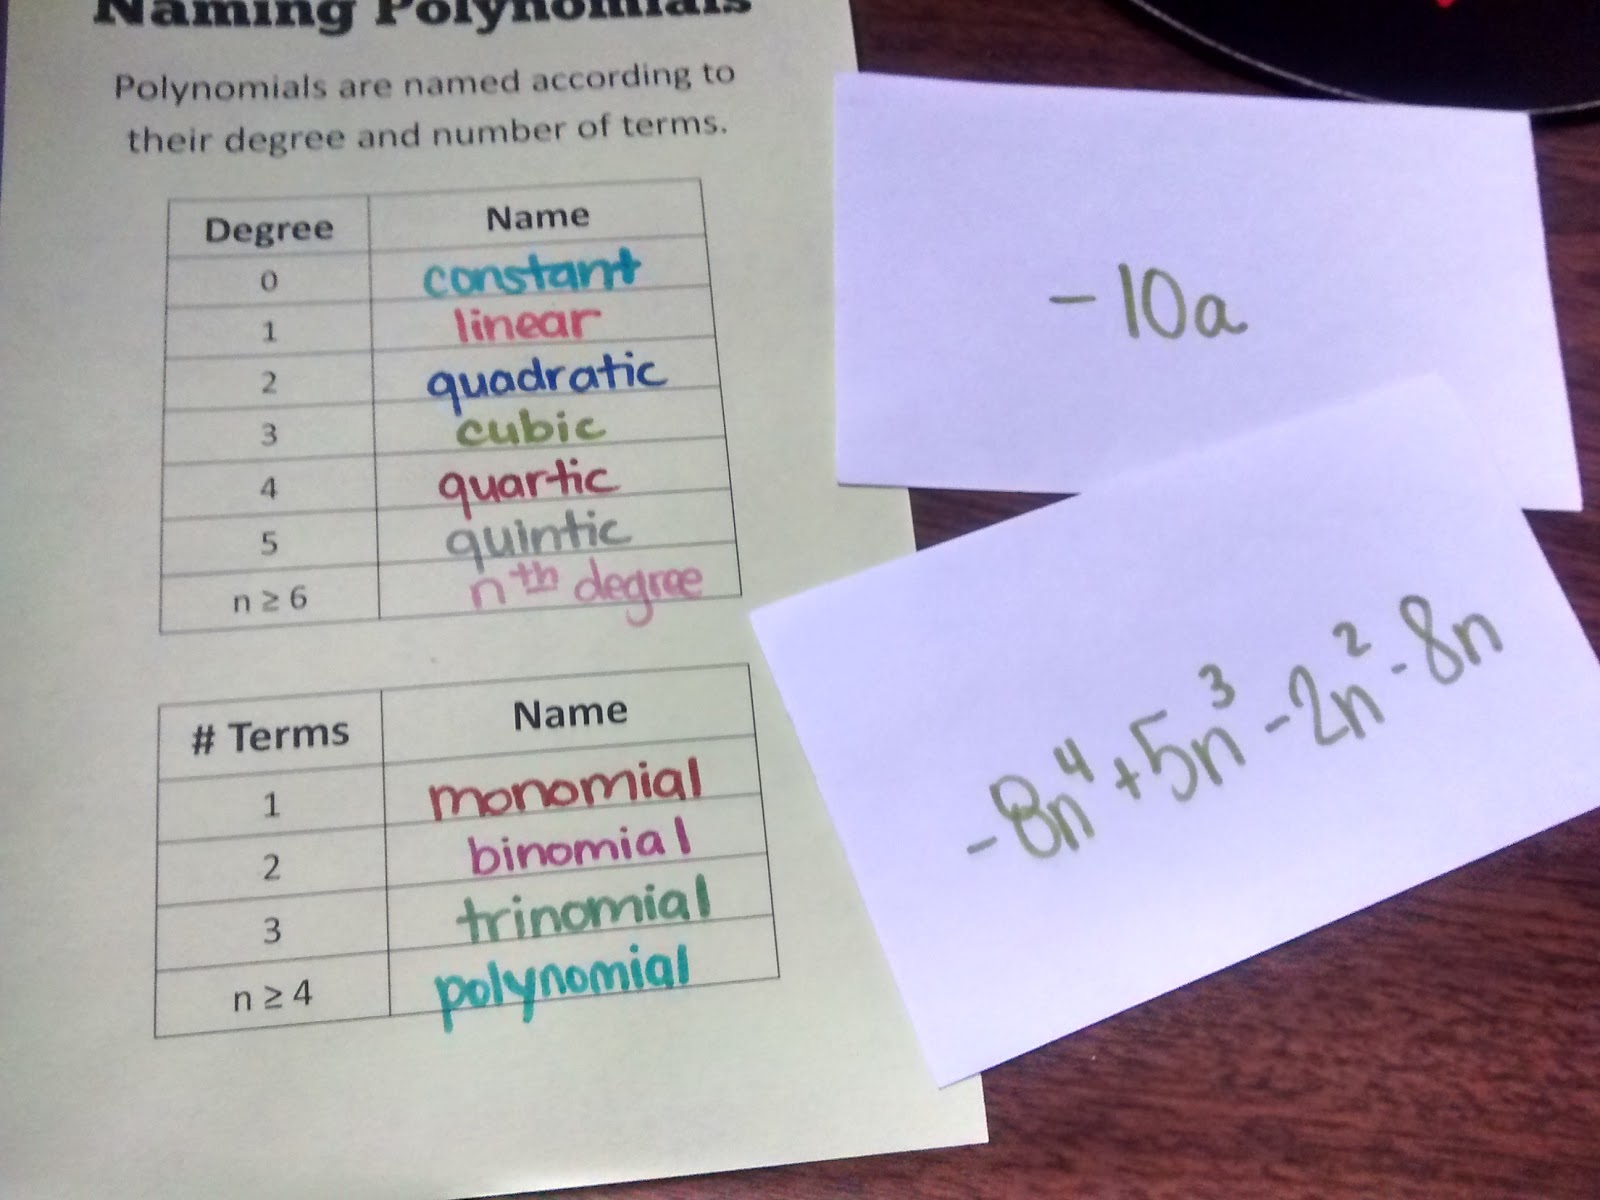 Naming Polynomials
Polynomials are named according to
their degree and number of terms.
Degree Name
0 constant
1 linear
2 quadratic
3 cubic
4 quartic
5 quintic
n ≥ 6 nᵗʰ degree
# Terms Name
1 monomial
2 binomial
3 trinomial
n ≥ 4 polynomial
-10a
-8n⁴+5n³-2n²-8n